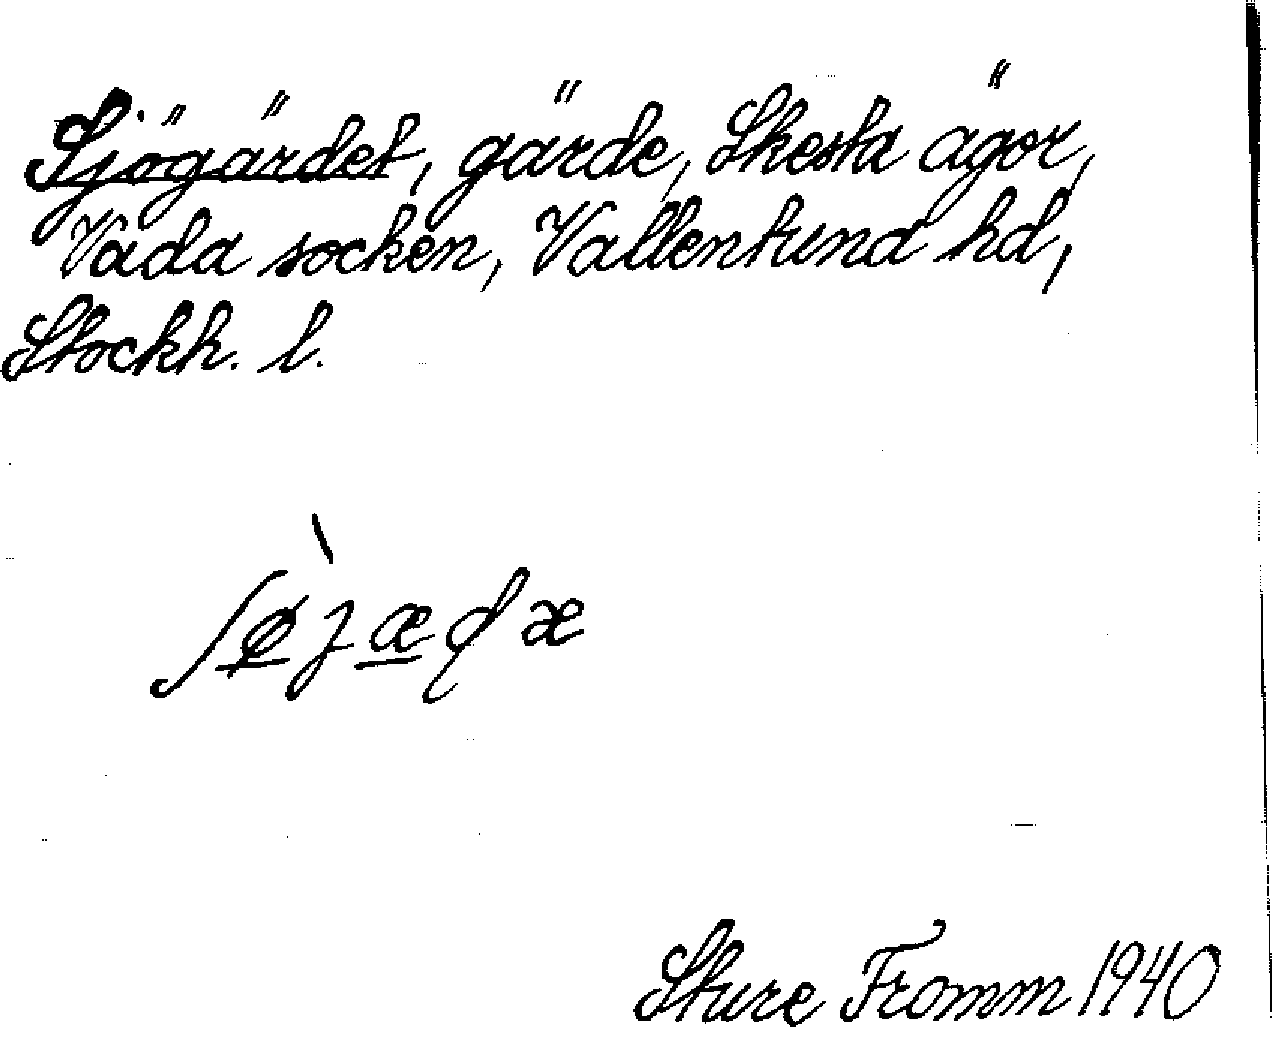 Sjögärdet, gärde, Skesta ägor,
Vada socken, Vallentuna hd,
Stockh. l.
ʃø̱̀jæ̱ɖæ
Sture Fromm 1940